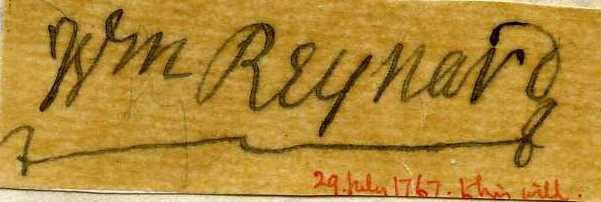 Wm Reynard
29. July 1767. this will.